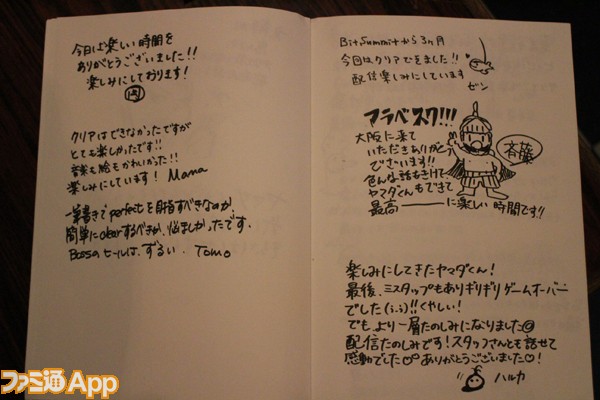 今日は楽しい時間を
ありがとうございました!!
楽しみにしております!
クリアはできなかったですが
とても楽しかったです!!
音楽も絵もかわいかった!!
楽しみにしています! Mana
一筆書きでperfectを目指すべきなのか、
簡単にclearするべきか、悩ましかったです。
Bossのヒールは、ずるい。 Tomo
BitSummitから3ヶ月
今回はクリアできました!!
配信楽しみにしています
ゼン
アラベスク!!!
大阪に来て
いただきありがとう
ございます!!
色んな話もきけて
ヤマダくんもできて
最高――に楽しい時間です!!
斉藤
楽しみにしてきたヤマダくん!
最後、ミスタップもありギリギリゲームオーバー
でした(ふぅ)!!くやしい!
でも、より一層たのしみになりました☺
配信たのしみです!スタッフさんとも話せて
感動でした♡ ありがとうございました♡!
ハルカ
ファミ通App